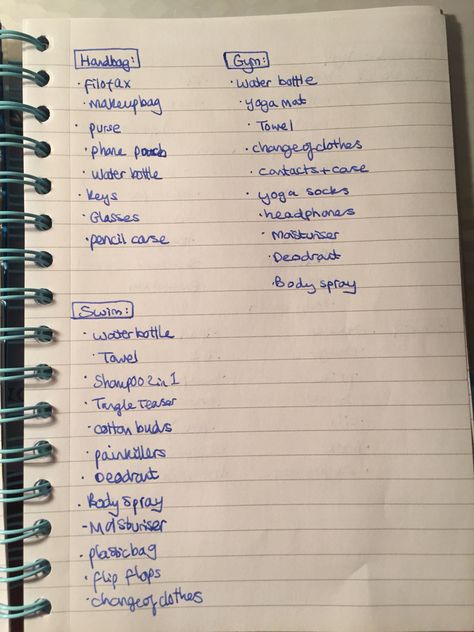 Handbag:
· filofax
· makeup bag
· purse
· phone pouch
· water bottle
· keys
· Glasses
· pencil case
Gym:
· water bottle
· yoga mat
· Towel
· change of clothes
· contacts + case
· yoga socks
· headphones
· Moisturiser
· Deodrant
· Body spray
Swim:
· water bottle
· Towel
· Shampoo 2 in 1
· Tangle Teaser
· cotton buds
· painkillers
· Deodrant
· Body spray
- Moisturiser
· plastic bag
· flip flops
· change of clothes